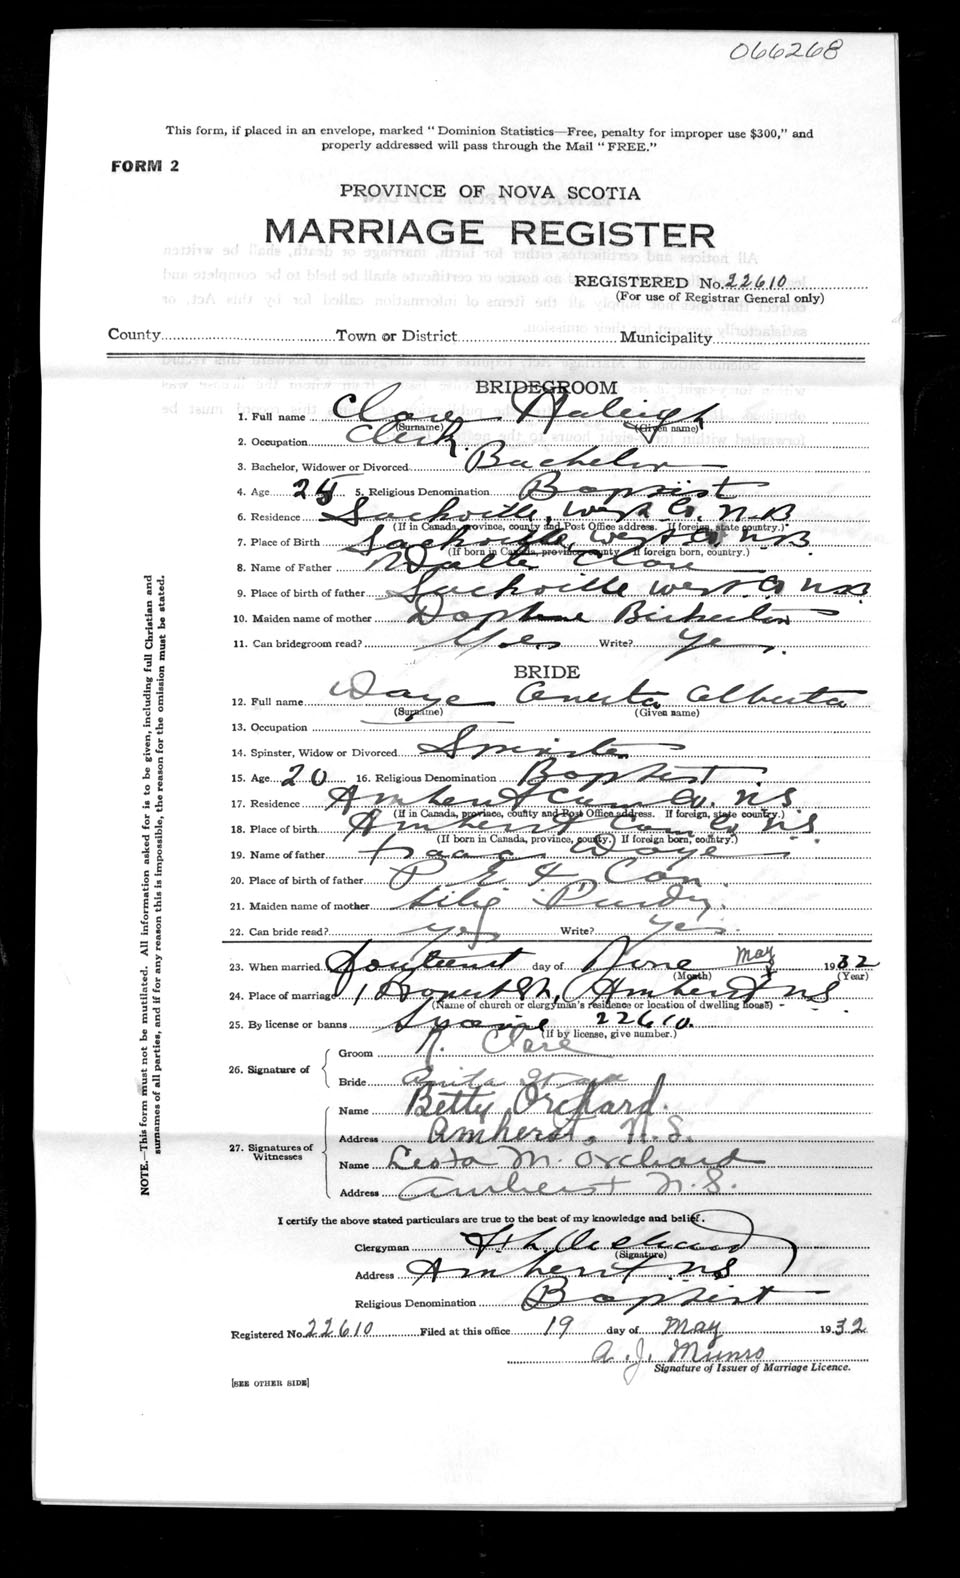 066268
This form, if placed in an envelope, marked "Dominion Statistics—Free, penalty for improper use $300," and
properly addressed will pass through the Mail "FREE."
FORM 2
PROVINCE OF NOVA SCOTIA
MARRIAGE REGISTER
REGISTERED No. 22610
(For use of Registrar General only)
County Town or District Municipality
BRIDEGROOM
1. Full name Clare Raleigh
(Surname) (Given name)
2. Occupation Clerk
3. Bachelor, Widower or Divorced Bachelor
4. Age 25 5. Religious Denomination Baptist
6. Residence Sackville, West Co. N.B
(If in Canada, province, county and Post Office address. If foreign, state country.)
7. Place of Birth Sackville, West Co N.B.
(If born in Canada, province, county If foreign born, country.)
8. Name of Father Clare
9. Place of birth of father Sackville West. Co N.B
10. Maiden name of mother Daphne
11. Can bridegroom read? Yes Write? Yes
BRIDE
12. Full name Daye Alberta
(Surname) (Given name)
13. Occupation
14. Spinster, Widow or Divorced Spinster
15. Age 20 16. Religious Denomination Baptist
17. Residence Amherst Cum Co. N S
(If in Canada, province, county and Post Office address. If foreign, state country.)
18. Place of birth Amherst Cum Co N S
(If born in Canada, province, county. If foreign born, country.)
19. Name of father Isaac Daye
20. Place of birth of father P E I Can
21. Maiden name of mother Purdy
22. Can bride read? yes Write? Yes
23. When married day of June May 1932
(Month) (Year)
24. Place of marriage Amherst N S
(Name of church or clergyman's residence or location of dwelling house)
25. By license or banns 22610.
(If by license, give number.)
26. Signature of
Groom R. Clare
Bride Anita
27. Signatures of Witnesses
Name Betty Orchard.
Address Amherst, N.S.
Name M. Orchard
Address Amherst N.S.
I certify the above stated particulars are true to the best of my knowledge and belief.
Clergyman Orchard
(Signature)
Address Amherst N S
Religious Denomination Baptist
Registered No. 22610 Filed at this office 19 day of May 1932
A. J. Munro
Signature of Issuer of Marriage Licence.
[SEE OTHER SIDE]
NOTE.—This form must not be mutilated. All information asked for is to be given, including full Christian and
surnames of all parties, and if for any reason this is impossible, the reason for the omission must be stated.